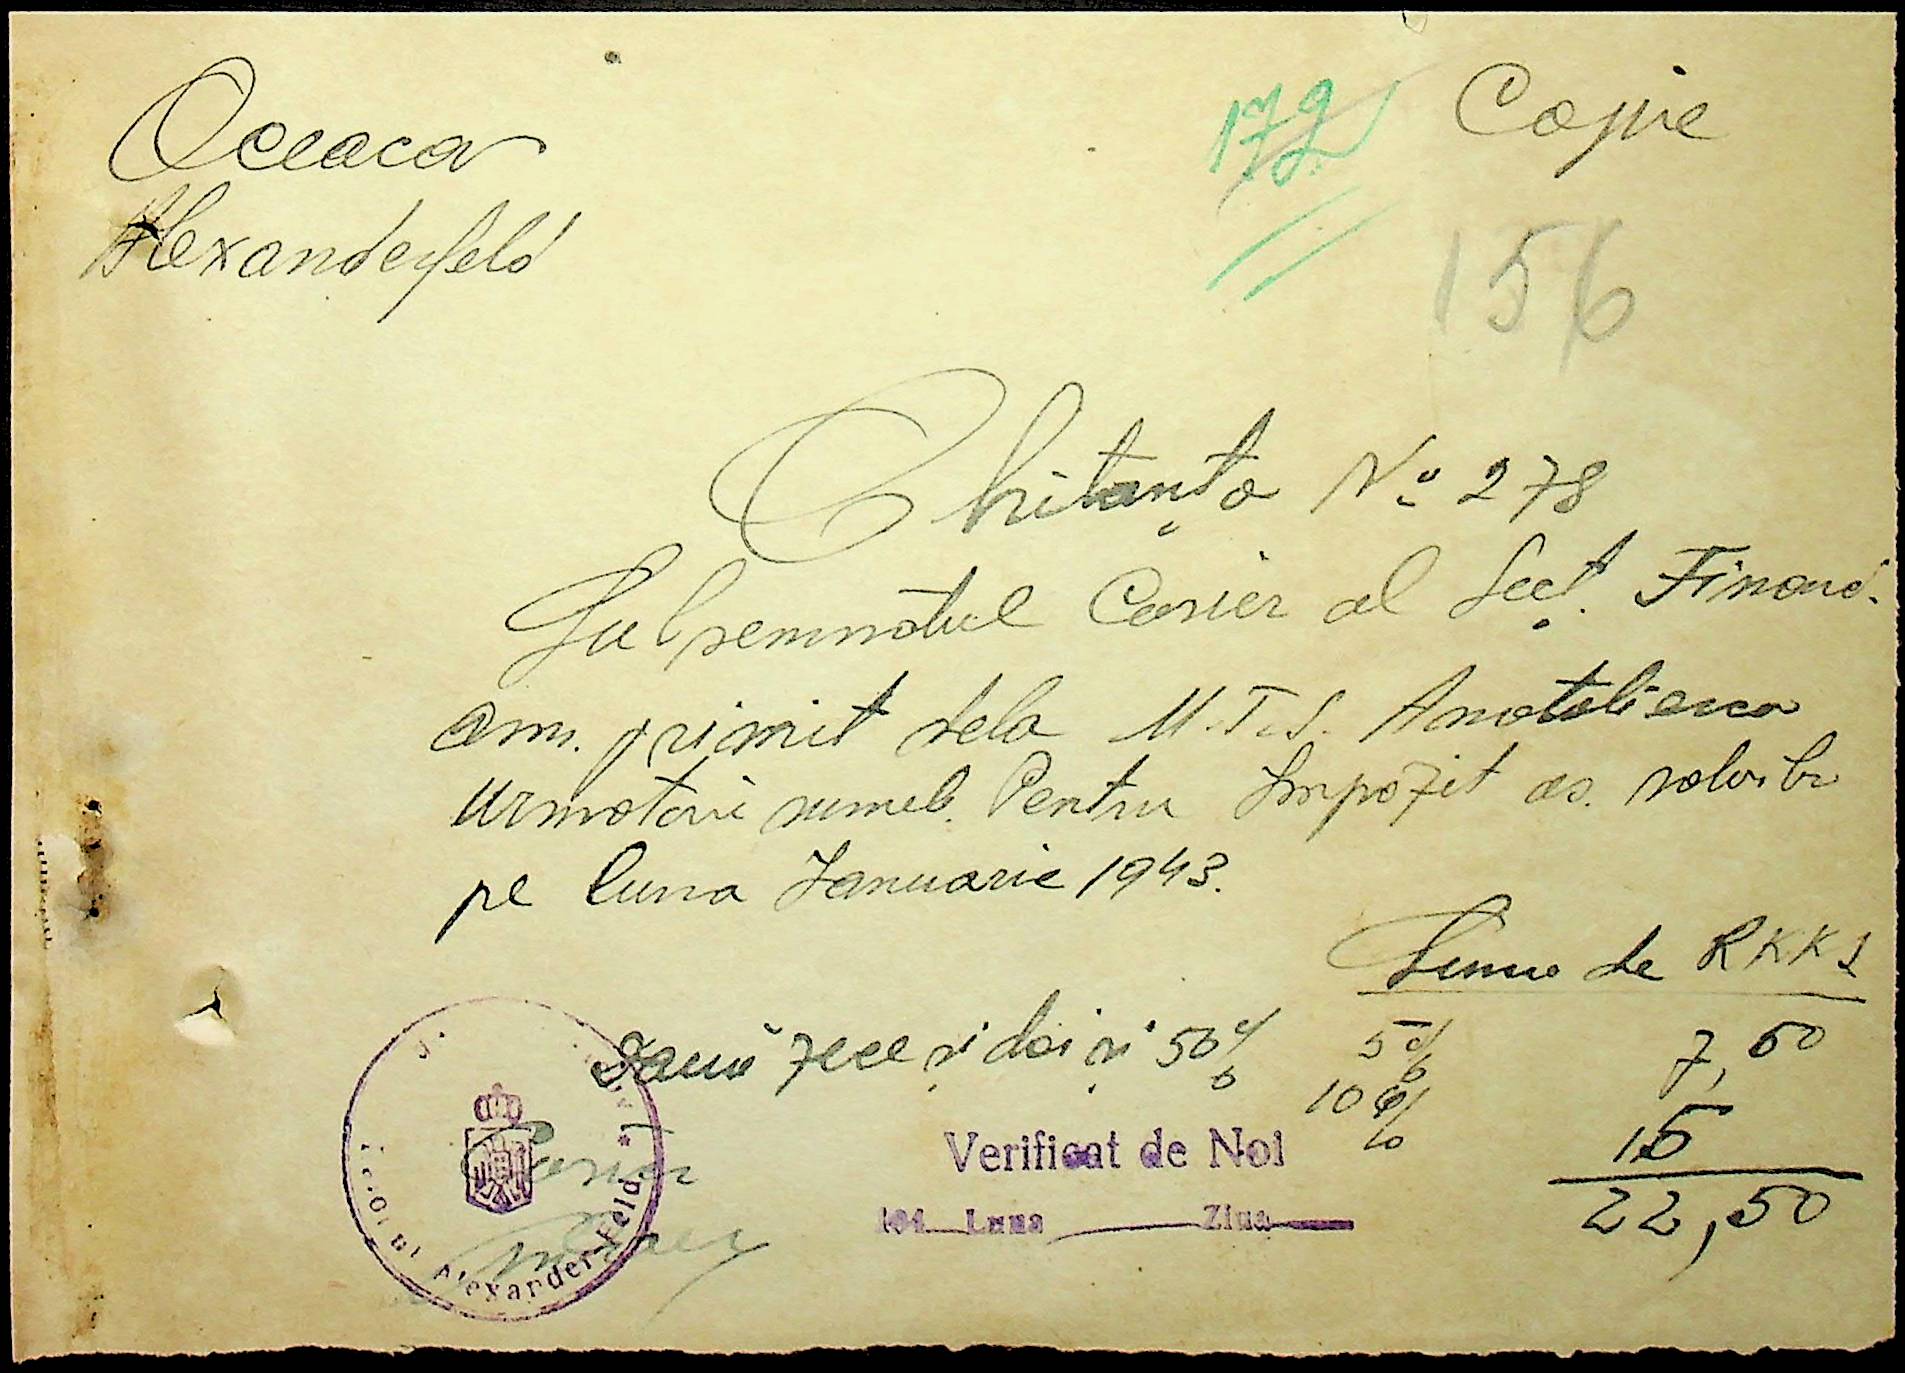 Oceacov
172
Copie
Alexanderfeld
156
Chitanța № 278
Subsemnatul Casier al Secț. Financ.
am primit dela M.T.S. Anatolievca
urmatorii sumele. Pentru Impozit as. salarile
pe luna Januarie 1943.
Suma de RKKS
Două zece și doi și 50%
5% 7,50
10% 15
22,50
Casier
Verificat de Noi
194 Luna Ziua
Alexander-Feld